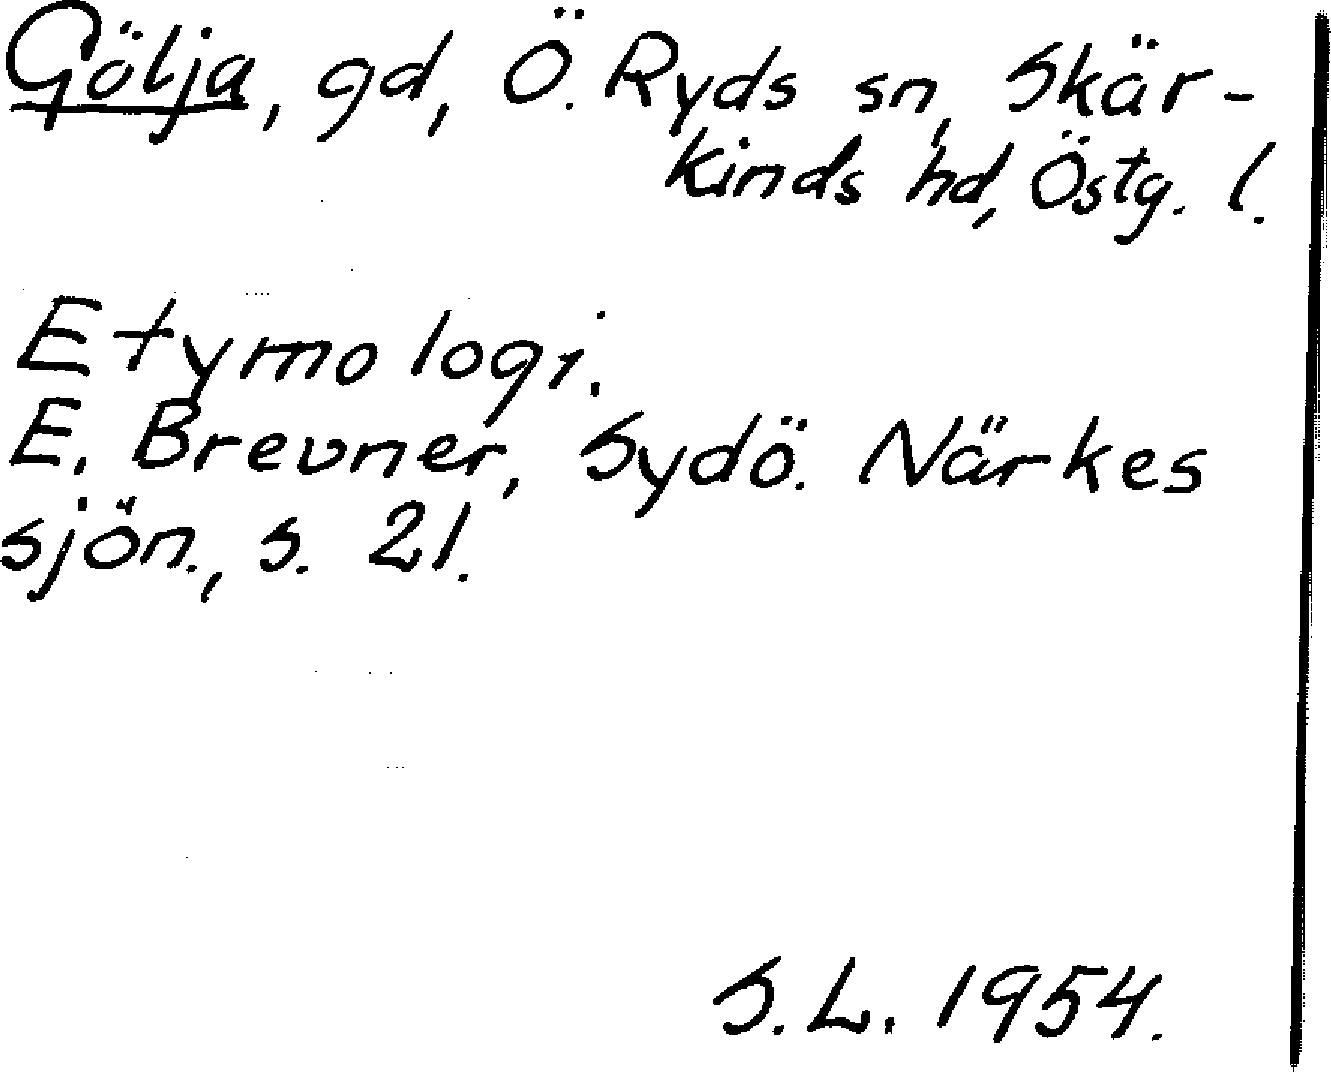 Gölja, gd, Ö. Ryds sn, Skär-
kinds hd, Östg. l.
Etymologi.
E. Brevner, Sydö. Närkes
sjön., s. 21.
S.L. 1954.